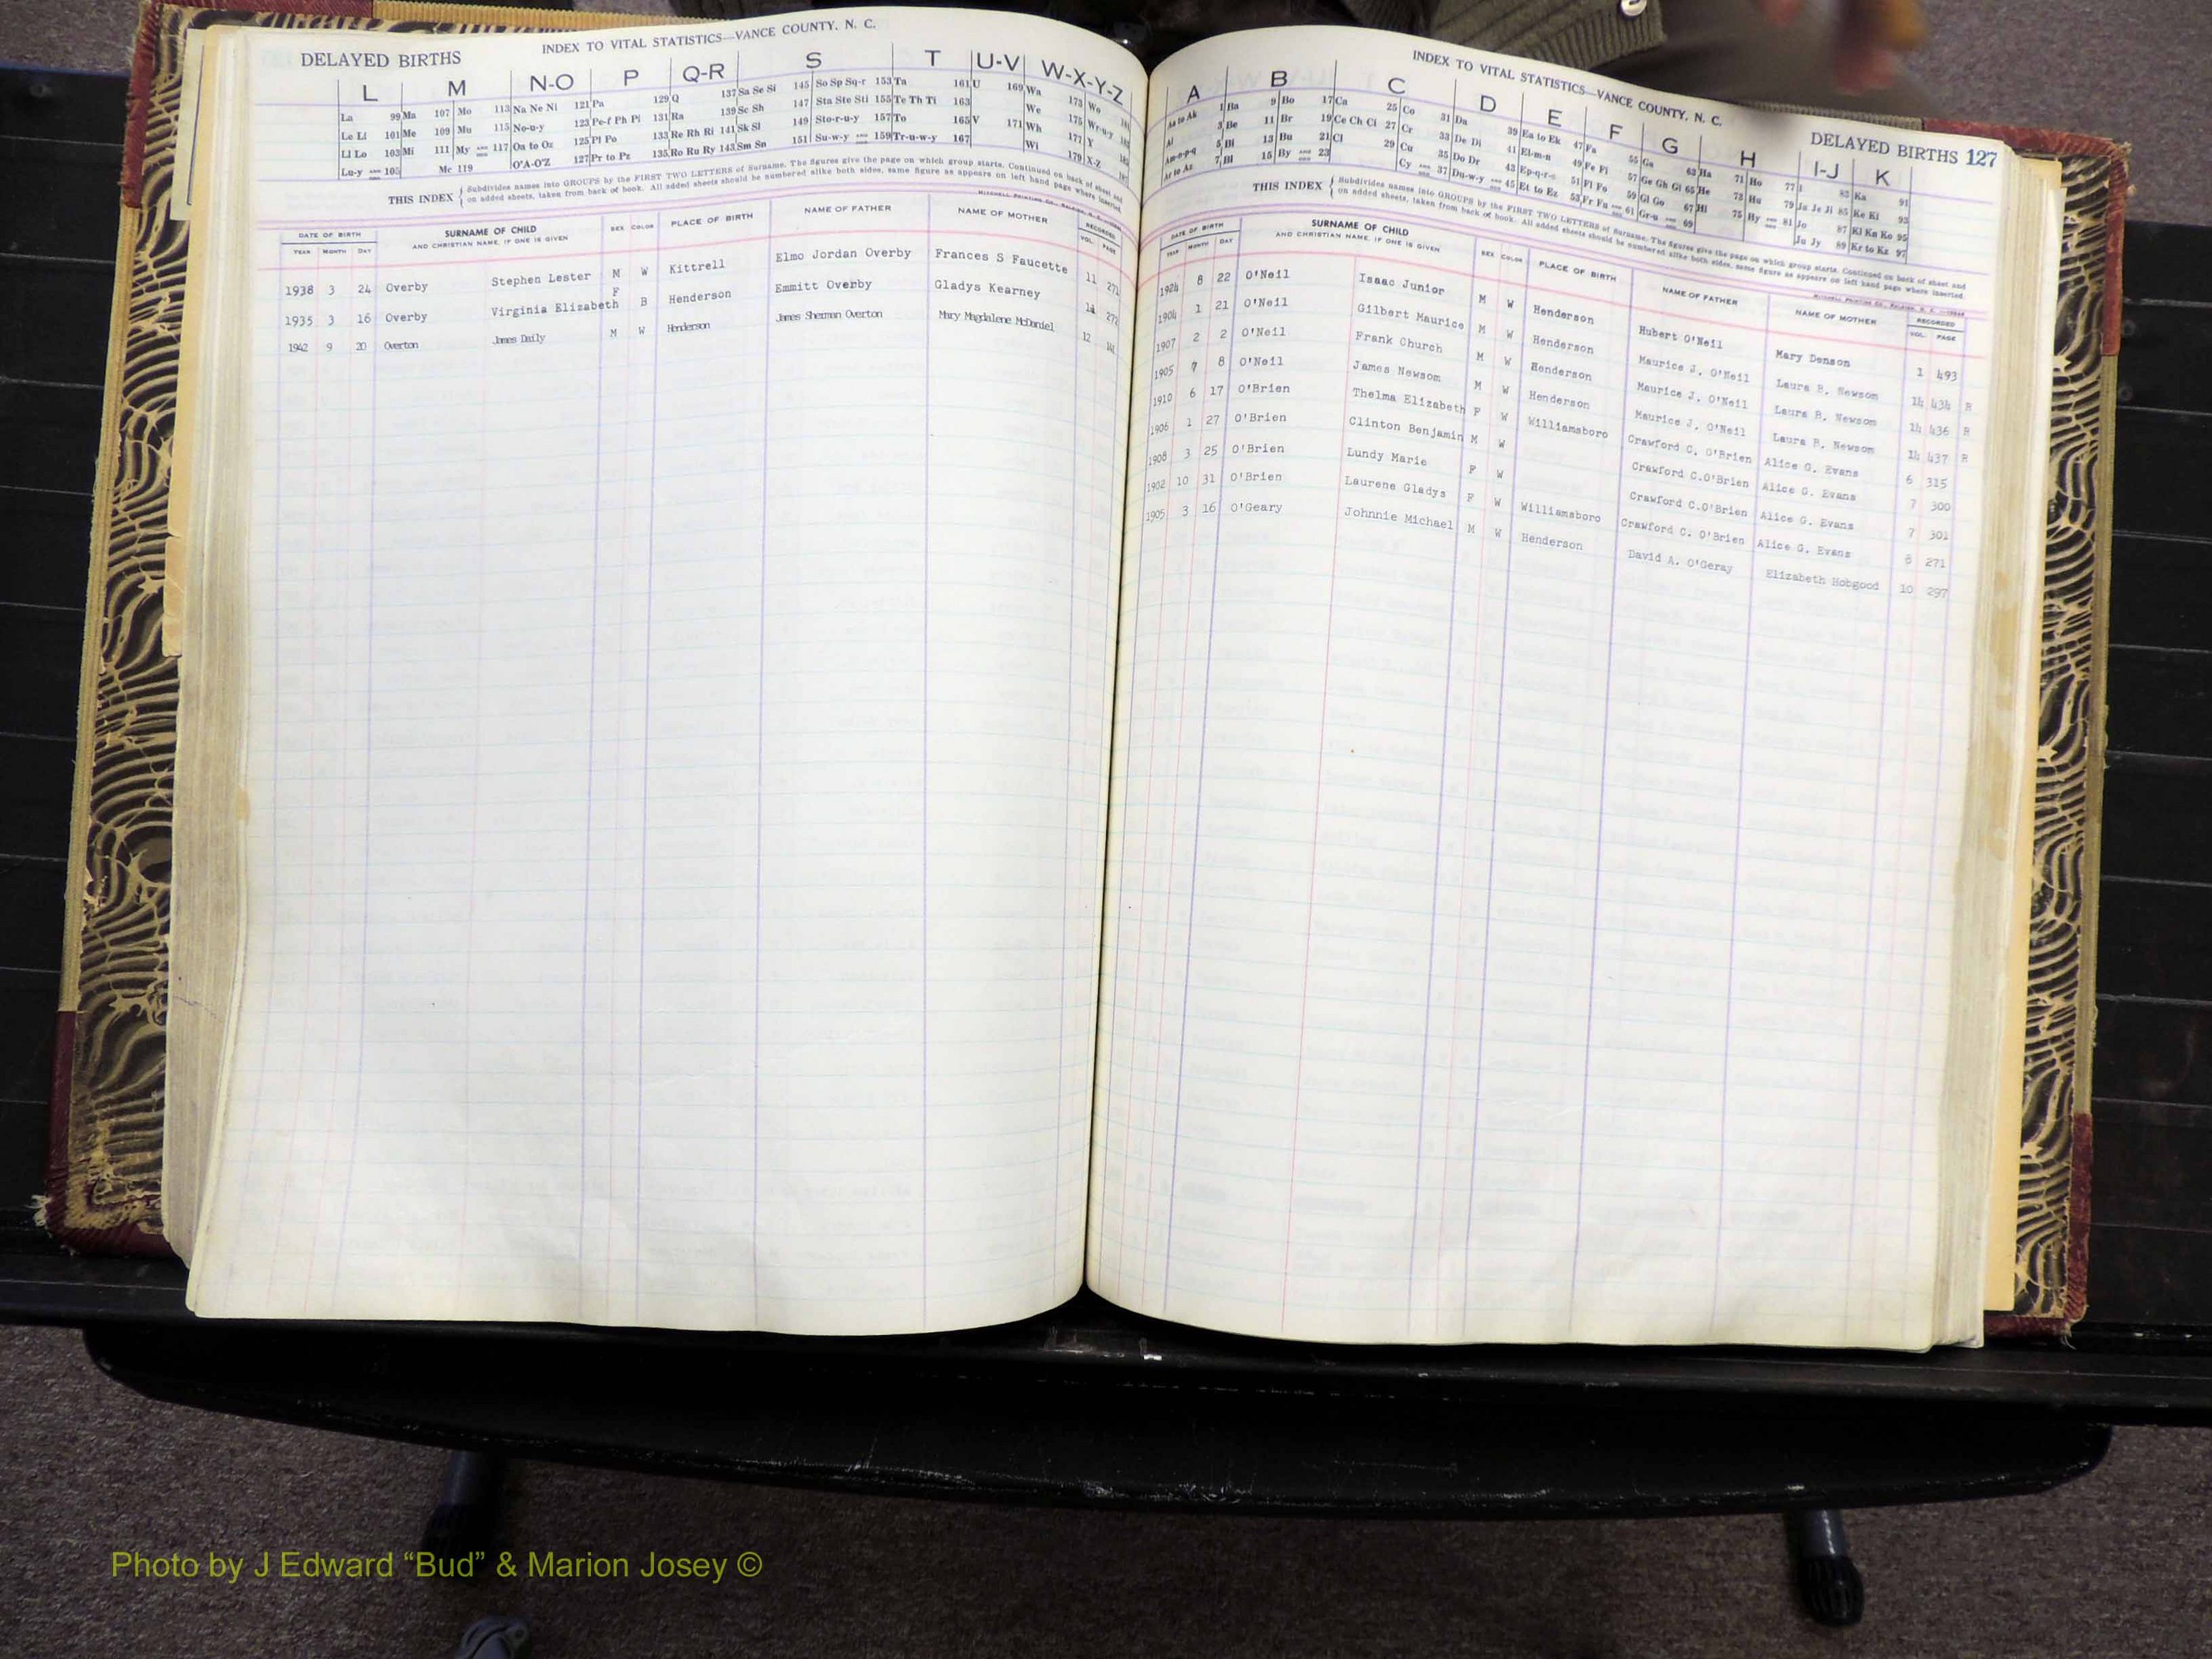 DELAYED BIRTHS
INDEX TO VITAL STATISTICS—VANCE COUNTY, N. C.
L M N-O P Q-R S T U-V W-X-Y-Z
La 99 Ma 107 Mo 113 Na Ne Ni 121 Pa 129 Q 137 Sa Se Si 145 So Sp Sq-r 153 Ta 161 U 169 Wa 173 Wo
Le Li 101 Me 109 Mu 115 No-u-y 123 Pe-f Ph Pi 131 Ra 139 Sc Sh 147 Sta Ste Sti 155 Te Th Ti 163 We 175 Wr-u-y
Ll Lo 103 Mi 111 My AND 117 Oa to Oz 125 Pl Po 133 Re Rh Ri 141 Sk Sl 149 Sto-r-u-y 157 To 165 V 171 Wh 177 Y
Lu-y AND 105 Mc 119 O'A-O'Z 127 Pr to Pz 135 Ro Ru Ry 143 Sm Sn 151 Su-w-y AND 159 Tr-u-w-y 167 Wi 179 X-Z
THIS INDEX { Subdivides names into GROUPS by the FIRST TWO LETTERS of Surname. The figures give the page on which group starts. Continued on back of sheet and
on added sheets, taken from back of book. All added sheets should be numbered alike both sides, same figure as appears on left hand page where inserted.
DATE OF BIRTH SURNAME OF CHILD SEX COLOR PLACE OF BIRTH NAME OF FATHER NAME OF MOTHER RECORDED
YEAR MONTH DAY AND CHRISTIAN NAME, IF ONE IS GIVEN VOL. PAGE
1938 3 24 Overby Stephen Lester M W Kittrell Elmo Jordan Overby Frances S Faucette 11 271
1935 3 16 Overby Virginia Elizabeth F B Henderson Emmitt Overby Gladys Kearney 272
1942 9 20 Overton James Daily M W Henderson James Sherman Overton Mary Magdalene McDaniel 12
INDEX TO VITAL STATISTICS—VANCE COUNTY, N. C.
DELAYED BIRTHS 127
A B C D E F G H I-J K
Aa to Ak 1 Ba 9 Bo 17 Ca 25 Co 31 Da 39 Ea to Ek 47 Fa 55 Ga 63 Ha 71 Ho 77 I 83 Ka 91
Al 3 Be 11 Br 19 Ce Ch Ci 27 Cr 33 De Di 41 El-m-n 49 Fe Fi 57 Ge Gh Gi 65 He 73 Hu 79 Ja Je Ji 85 Ke Ki 93
Am-o-p-q 5 Bi 13 Bu 21 Cl 29 Cu 35 Do Dr 43 Ep-q-r-s 51 Fl Fo 59 Gl Go 67 Hi 75 Hy AND 81 Jo 87 Kl Kn Ko 95
Ar to Az 7 Bl 15 By AND 23 Cy AND 37 Du-w-y AND 45 Et to Ez 53 Fr Fu AND 61 Gr-u AND 69 Ju Jy 89 Kr to Kz 97
THIS INDEX { Subdivides names into GROUPS by the FIRST TWO LETTERS of Surname. The figures give the page on which group starts. Continued on back of sheet and
on added sheets, taken from back of book. All added sheets should be numbered alike both sides, same figure as appears on left hand page where inserted.
DATE OF BIRTH SURNAME OF CHILD SEX COLOR PLACE OF BIRTH NAME OF FATHER NAME OF MOTHER RECORDED
YEAR MONTH DAY AND CHRISTIAN NAME, IF ONE IS GIVEN VOL. PAGE
1924 8 22 O'Neil Isaac Junior M W Henderson Hubert O'Neil Mary Denson 1 493
1904 1 21 O'Neil Gilbert Maurice M W Henderson Maurice J. O'Neil Laura B. Newsom 14 434 R
1907 2 2 O'Neil Frank Church M W Henderson Maurice J. O'Neil Laura B. Newsom 14 436 R
1905 7 8 O'Neil James Newsom M W Henderson Maurice J. O'Neil Laura B. Newsom 14 437 R
1910 6 17 O'Brien Thelma Elizabeth F W Williamsboro Crawford C. O'Brien Alice G. Evans 6 315
1906 1 27 O'Brien Clinton Benjamin M W Crawford C.O'Brien Alice G. Evans 7 300
1908 3 25 O'Brien Lundy Marie F W Crawford C.O'Brien Alice G. Evans 7 301
1902 10 31 O'Brien Laurene Gladys F W Williamsboro Crawford C. O'Brien Alice G. Evans 8 271
1905 3 16 O'Geary Johnnie Michael M W Henderson David A. O'Geray Elizabeth Hobgood 10 297
Photo by J Edward “Bud” & Marion Josey ©